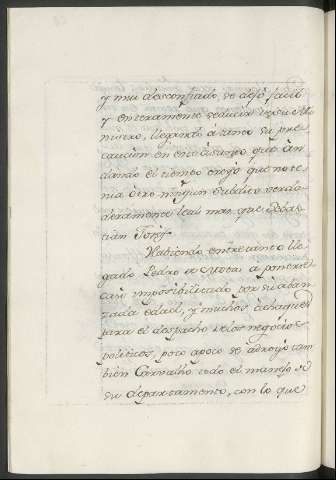 y mui desconfiado se dejó facil
y enteramente seducir de su Mi
nistro, llegando á tanto su pre
caucion en este asunto, que an
dando el tiempo creyó que no te
nia otro ningun subdito verda
deramente leal mas que Sebas
tian José.
Habiendo entretanto lle
gado Pedro de Mota a ponerse
casi imposibilitado por su aban
zada edad, y muchos achaques
para el despacho de los negocios
politicos, poco apoco se adrogó tam
bien Carvalho todo el manejo de
su departamento, con lo que